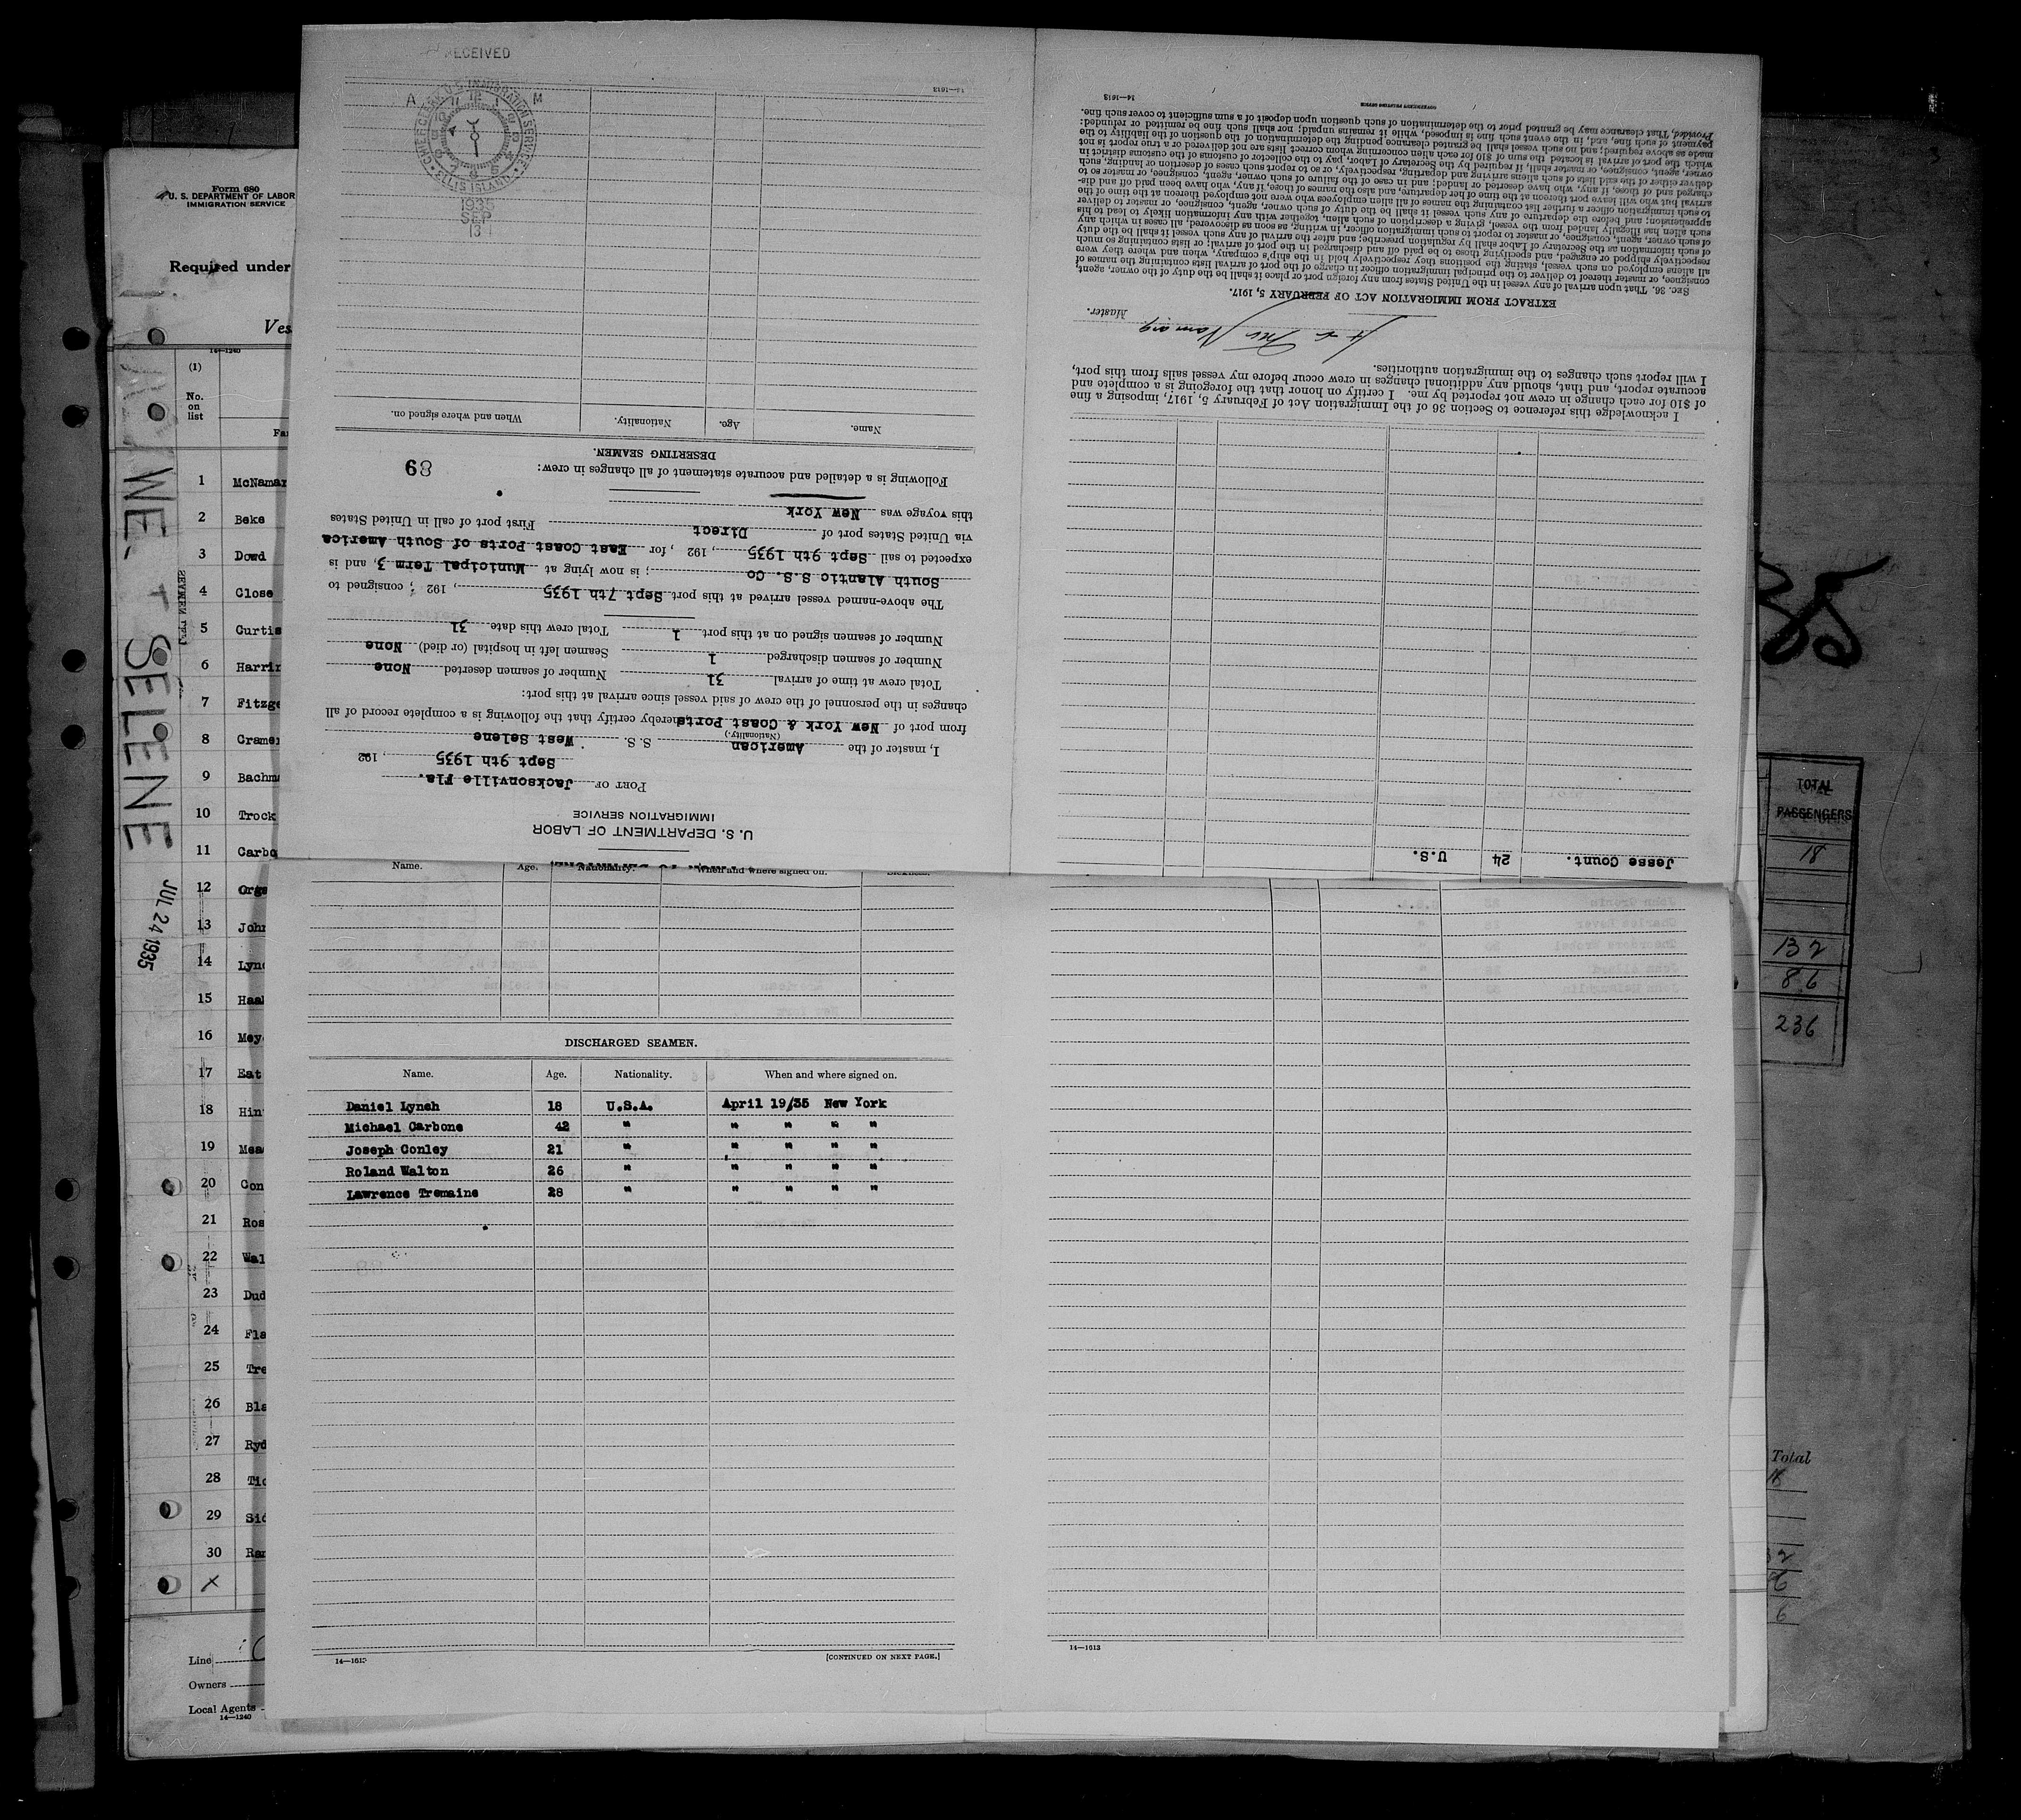 RECEIVED
A M
CHIEF CLERK, U.S. IMMIGRATION SERVICE
ELLIS ISLAND
1935
SEP
13
Form 680
U. S. DEPARTMENT OF LABOR
IMMIGRATION SERVICE
Required under
14—1240
(1)
No.
on
list
1 McNamar
2 Beke
3 Dowd
4 Close
5 Curtis
6 Harrin
7 Fitzge
8 Cramer
9 Bachma
10 Trock
11 Carbo
12 Orga
13 John
14 Lync
15 Haal
16 Meye
17 Eat
18 Hin
19 Mea
20 Con
21 Ros
22 Wal
23 Dud
24 Fla
25 Tre
26 Bla
27 Ryd
28 Tic
29 Sid
30 Ran
X
Line
Owners
Local Agents
14—1240
WEST SELENE
JUL 24 1935
U. S. DEPARTMENT OF LABOR
IMMIGRATION SERVICE
PORT OF Jacksonville Fla.
Sept 9th 1935, 192
I, master of the American S. S. West Selene
(Nationality.)
from port of New York & Coast Ports, hereby certify that the following is a complete record of all
changes in the personnel of the crew of said vessel since arrival at this port:
Total crew at time of arrival 31 Number of seamen deserted None
Number of seamen discharged 1 Seamen left in hospital (or died) None
Number of seamen signed on at this port 1 Total crew this date 31
The above-named vessel arrived at this port Sept 7th 1935, 192 ; consigned to
South Alantic S.S. Co ; is now lying at Municipal Term 3, and is
expected to sail Sept 9th 1935, 192 , for East Coast Ports of South America
via United States port of Direct First port of call in United States
this voyage was New York
Following is a detailed and accurate statement of all changes in crew:
89
DESERTING SEAMEN.
Name. Age. Nationality. When and where signed on.
14—1613
Jesse Count. 24 U.S.
I acknowledge this reference to Section 36 of the Immigration Act of February 5, 1917, imposing a fine
of $10 for each change in crew not reported by me. I certify on honor that the foregoing is a complete and
accurate report, and that, should any additional changes in crew occur before my vessel sails from this port,
I will report such changes to the immigration authorities.
Master.
EXTRACT FROM IMMIGRATION ACT OF FEBRUARY 5, 1917.
SEC. 36. That upon arrival of any vessel in the United States from any foreign port or place it shall be the duty of the owner, agent,
consignee, or master thereof to deliver to the principal immigration officer in charge of the port of arrival lists containing the names of
all aliens employed on such vessel, stating the positions they respectively hold in the ship's company, when and where they were
respectively shipped or engaged, and specifying those to be paid off and discharged in the port of arrival; or lists containing so much
of such information as the Secretary of Labor shall by regulation prescribe; and after the arrival of any such vessel it shall be the duty
of such owner, agent, consignee, or master to report to such immigration officer, in writing, as soon as discovered, all cases in which any
such alien has illegally landed from the vessel, giving a description of such alien, together with any information likely to lead to his
apprehension; and before the departure of any such vessel it shall be the duty of such owner, agent, consignee, or master to deliver
to such immigration officer a further list containing the names of all alien employees who were not employed thereon at the time of the
arrival but who will leave port thereon at the time of her departure, and also the names of those, if any, who have been paid off and dis-
charged and of those, if any, who have deserted or landed; and in case of the failure of such owner, agent, consignee, or master so to
deliver either of the said lists of such aliens arriving and departing, respectively, or so to report such cases of desertion or landing, such
owner, agent, consignee, or master shall, if required by the Secretary of Labor, pay to the collector of customs of the customs district in
which the port of arrival is located the sum of $10 for each alien concerning whom correct lists are not delivered or a true report is not
made as above required; and no such vessel shall be granted clearance pending the determination of the question of the liability to the
payment of such fine, and, in the event such fine is imposed, while it remains unpaid; nor shall such fine be remitted or refunded:
Provided, That clearance may be granted prior to the determination of such question upon deposit of a sum sufficient to cover such fine.
14—1613
GOVERNMENT PRINTING OFFICE
Name. Age. Nationality. When and where signed on.
DISCHARGED SEAMEN.
Name. Age. Nationality. When and where signed on.
Daniel Lynch 18 U.S.A. April 19/35 New York
Michael Carbone 42 " " " " "
Joseph Conley 21 " " " " "
Roland Walton 26 " " " " "
Lawrence Tremaine 28 " " " " "
14—1613
[CONTINUED ON NEXT PAGE.]
14—1613
TOTAL
PASSENGERS
18
132
86
236
Total
18